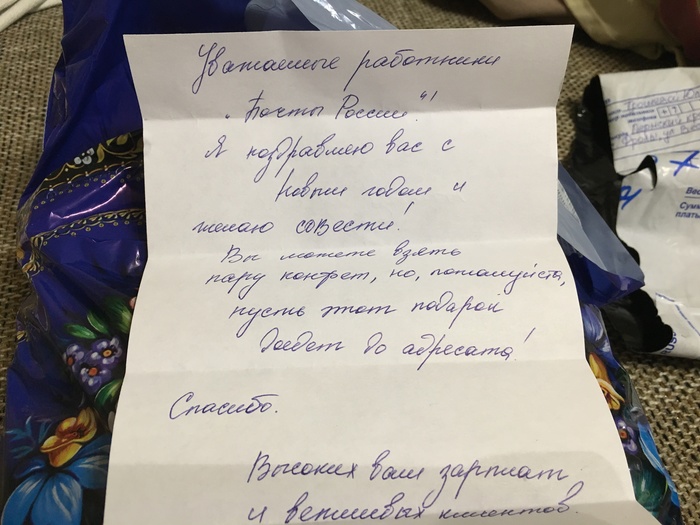 Уважаемые работники
"Почты России"!
Я поздравляю вас с
Новым годом и
желаю совести!
Вы можете взять
пару конфет, но, пожалуйста,
пусть этот подарок
доедет до адресата!
Спасибо.
Высоких вам зарплат
и вежливых клиентов.
Пермский кр
Вес
Сумм